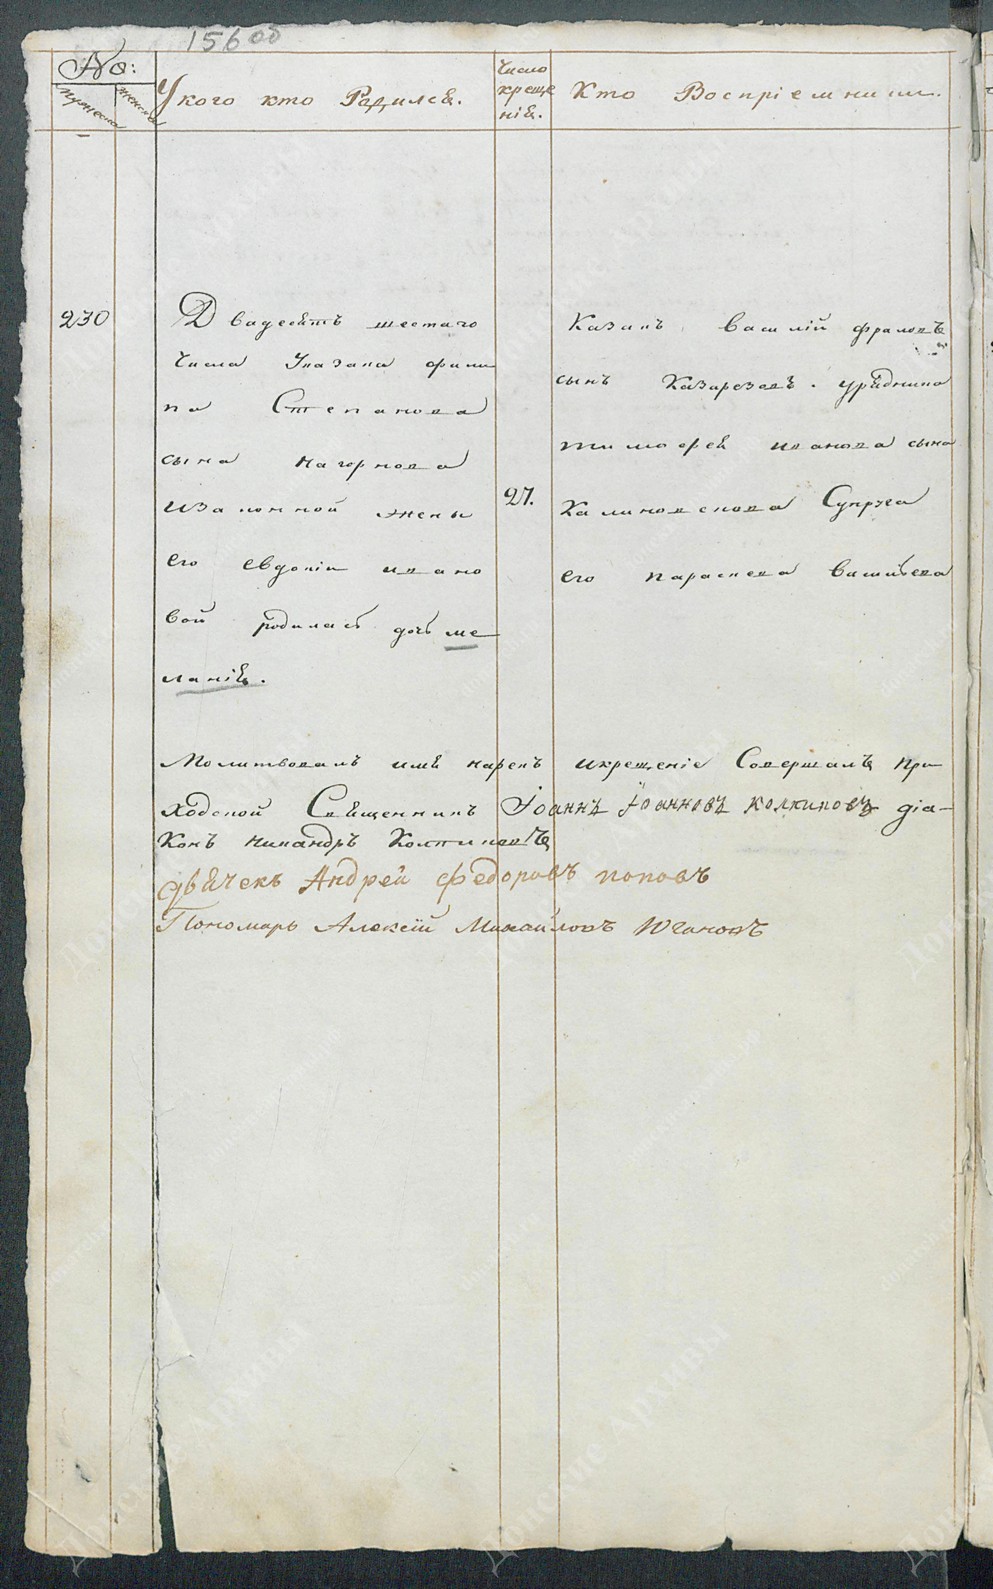 156об
№:
мужеска
женска
У кого кто Радился.
Число
креще
нія.
Кто Воспріемники.
230
Двадесять шестаго
Числа Указака фили
па Степанова
сына нагорнова
изаконной жены
его евдокіи ивано
вой родилась дочь ме
ланія.
27.
Казакъ василій фраловъ
сынъ Казарезовъ. урядника
тимофея иванова сына
Калиновскова Супруга
его параскева васильева
Молитвовалъ имя нарекъ икрещеніе Совершалъ при
ходской Священникъ Іоаннъ Іоанновъ колкиновъ діа-
Конъ никандръ
дьячекъ Андрей Федоровъ поповъ
Пономарь Алексѣй Михайловъ Югановъ